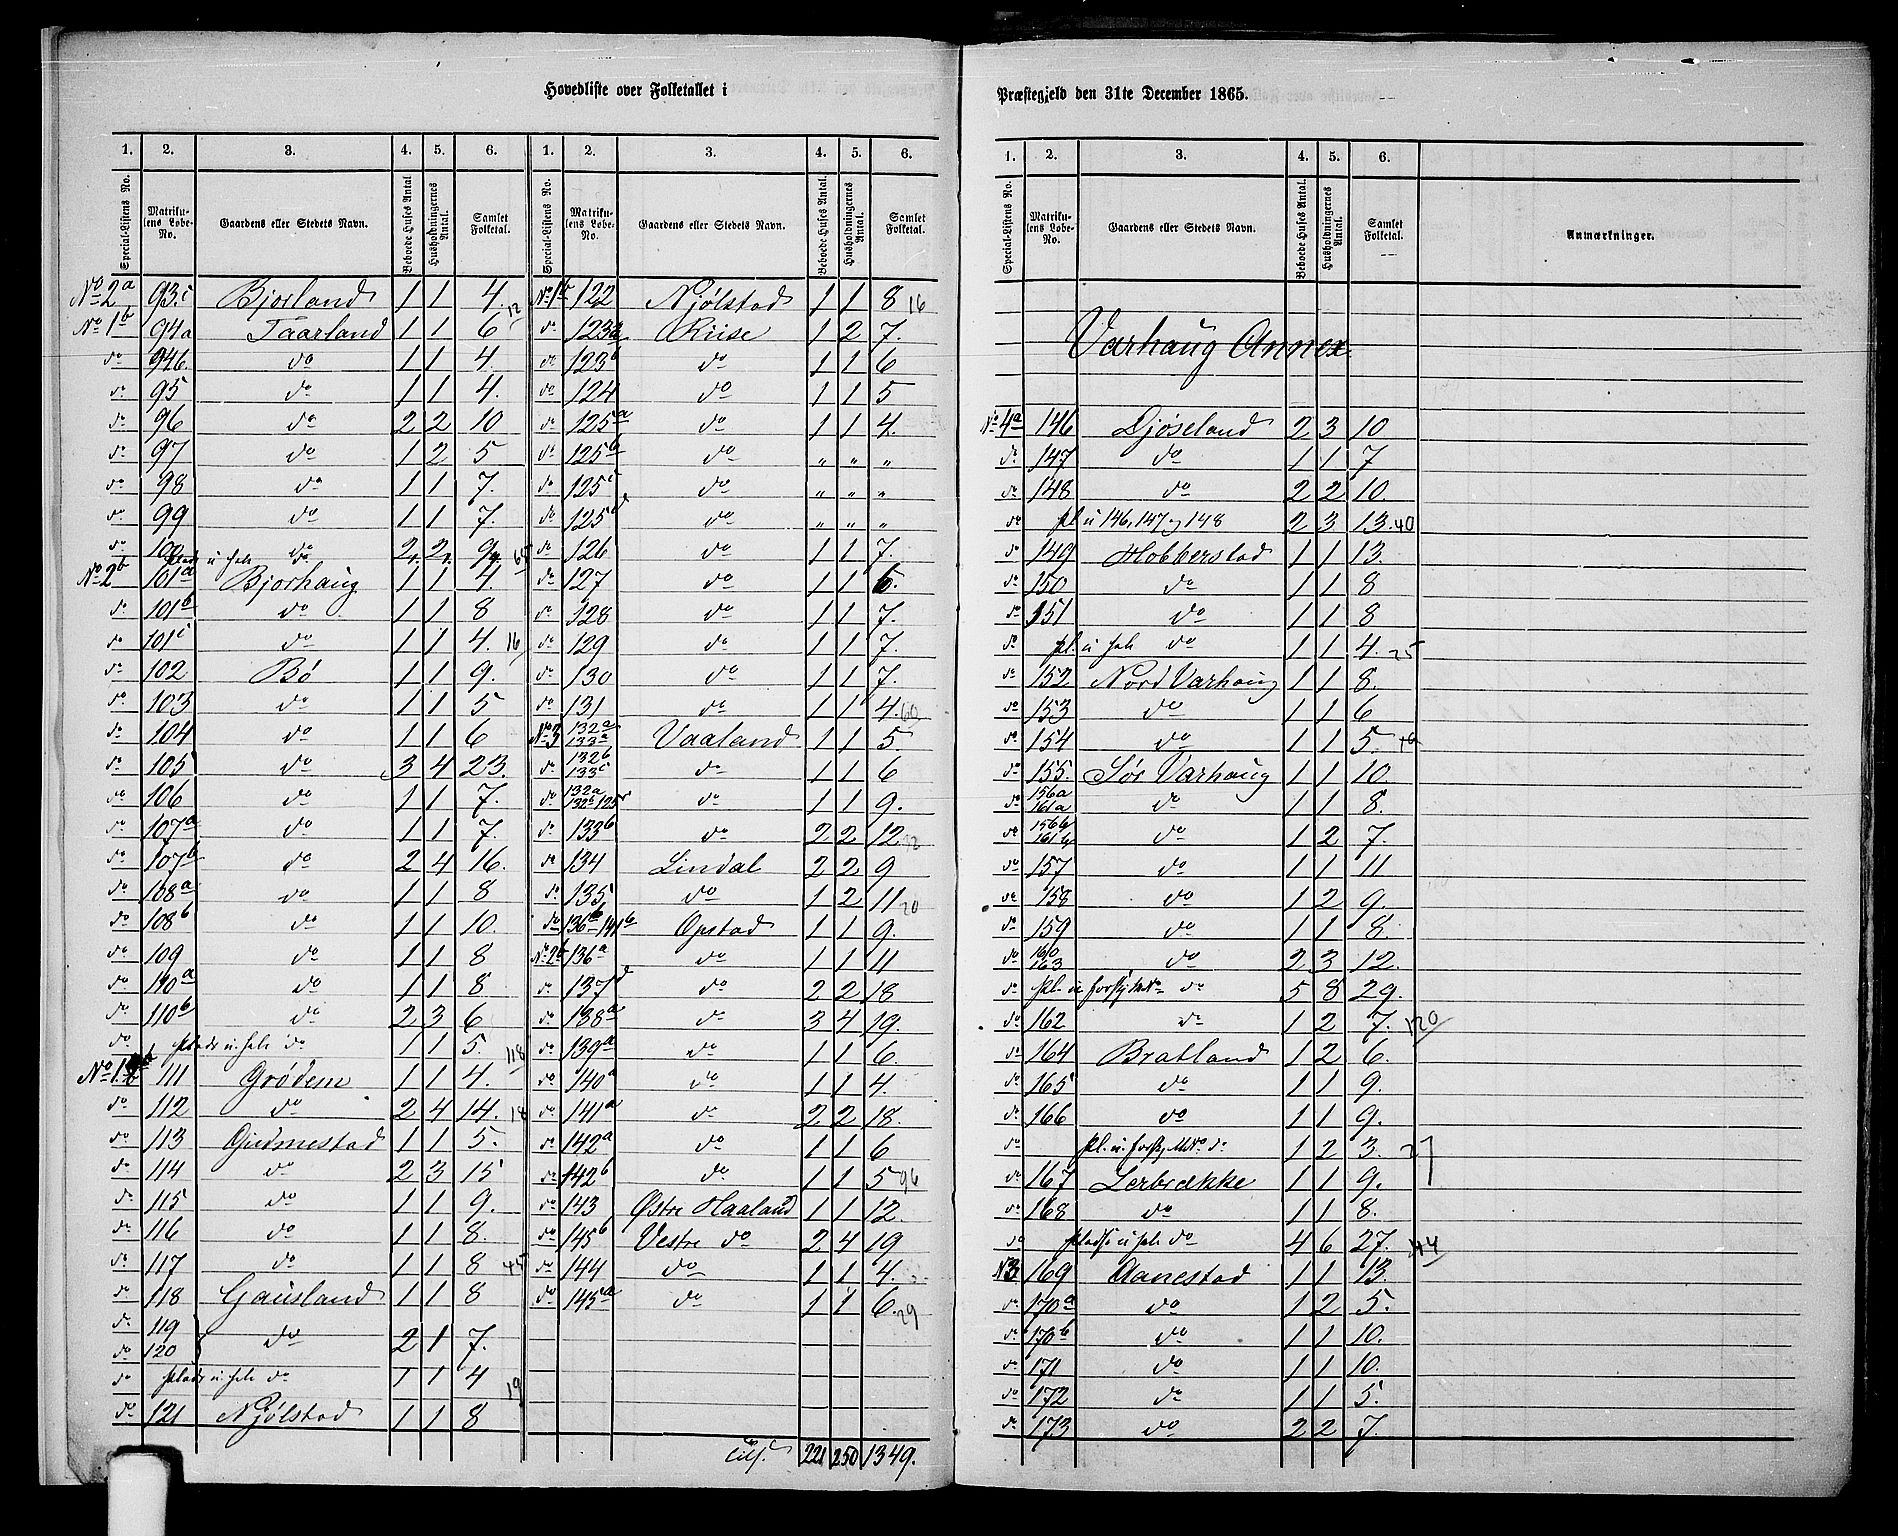 Hovedliste over Folketallet i
1. 2. 3. 4. 5. 6. 1. 2. 3. 4. 5. 6.
Special-Listens No. Matrikulens Løbe-No. Gaardens eller Stedets Navn. Beboede Huses Antal Husholdningernes Antal. Samlet Folketal. Special-Listens No. Matrikulens Løbe-No. Gaardens eller Stedets Navn. Beboede Huses Antal. Husholdningernes Antal. Samlet Folketal.
No 2a 93c Bjorland 1 1 4. 12
No 1b 94a Taarland 1 1 6
do 94b. do 1 1 4.
do 95 do 1 1 4.
do 96 do 2 2 10
do 97 do 1 2 5
do 98 do 1 1 7.
do 99 do 1 1 7.
do 100 do 2 2 9 65
No 2b 101a Bjorhaug 1 1 4
do 101b do 1 1 8
do 101c do 1 1 4. 16
do 102 Bö 1 1 9.
do 103 do 1 1 5
do 104 do 1 1 6
do 105 do 3 4 23.
do 106 do 1 1 7.
do 107a do 1 1 7.
do 107b do 2 4 16.
do 108a do 1 1 8
do 108b do 1 1 10.
do 109 do 1 1 8
do 110a do 1 1 8
do 110b do 2 3 6
do Plads u. hele do 1 1 5. 118
111 Grödem 1 1 4.
do 112 do 2 4 14. 18
do 113 Gudmestad 1 1 5.
do 114 do 2 3 15
do 115 do 1 1 9.
do 116 do 1 1 8.
do 117 do 1 1 8 45
do 118 Gausland 1 1 8
do 119
do 120 do 2 1 7.
do Plads u hele do 1 1 4 19
do 121 Njölstad 1 1 8
No 1b 122 Njölstad 1 1 8 16
do 123a Riise 1 2 7.
do 123b do 1 1 6
do 124 do 1 1 5
do 125a do 1 1 4.
do 125b do " " "
do 125c do " " "
do 125d do " " "
do 126 do 1 1 7.
do 127 do 1 1 6.
do 128 do 1 1 7.
do 129 do 1 1 7.
do 130 do 1 1 7.
do 131 do 1 1 4. 60
No 3 132a 133a Vaaland 1 1 5.
do 132b 133c do 1 1 6
do do 1 1 9.
do 133b do 2 2 12 32
do 134 Lindal 2 2 9
do 135 do 1 2 11 20
do 136b 141b Opstad 1 1 9.
No 2b 136a do 1 1 11
do 137d do 2 2 18
do 138a do 3 4 19.
do 139a do 1 1 6.
do 140a do 1 1 4.
do 141a do 2 2 18.
do 142a do 1 1 6
do 142b do 1 1 5 96
do 143 Østre Haaland 1 1 12.
do 145b Vestre do 2 4 19
do 144 do 1 1 4.
do 145a do 1 1 6. 29
221 250 1349.
Præstegjeld den 31te December 1865.
1. 2. 3. 4. 5. 6.
Special-Listens No. Matrikulens Løbe-No. Gaardens eller Stedets Navn. Beboede Huses Antal. Husholdningernes Antal. Samlet Folketal. Anmærkninger.
Varhaug Annex
No 4a 146 Djöseland 2 3 10
do 147 do 1 1 7
do 148 do 2 2 10.
do pl u 146, 147 og 148 2 3 13. 40
do 149 Hobberstad 1 1 13.
do 150 do 1 1 8
do 151 do 1 1 8
do pl. u hele do 1 1 4. 25
do 152 Nord Varhaug 1 1 8.
do 153 do 1 1 6
do 154 do 1 1 5. 19
do 155. Sör Varhaug 1 1 10.
do 156a 161a do 1 1 8.
do 156b 161b do 1 2 7.
do 157 do 1 1 11
do 158 do 1 2 9.
do 159 do 1 1 8.
do 160 163 do 2 3 12.
do pl. u forskj. MNo do 5 8 29.
do 162 do 1 2 7. 120
do 164 Bratland 1 2 6.
do 165 do 1 1 9.
do 166 do 1 1 9.
do pl. u. forskj. MNo. do 1 2 3. 27
do 167 Lerbrække 1 1 9.
do 168 do 1 1 8.
do pladse u hele do 4 6 27. 44
N 3 169 Aanestad 1 1 13.
do 170a do 1 2 5.
do 170b do 1 1 10.
do 171 do 1 1 10.
do 172 do 1 1 5.
do 173 do 2 2 7.